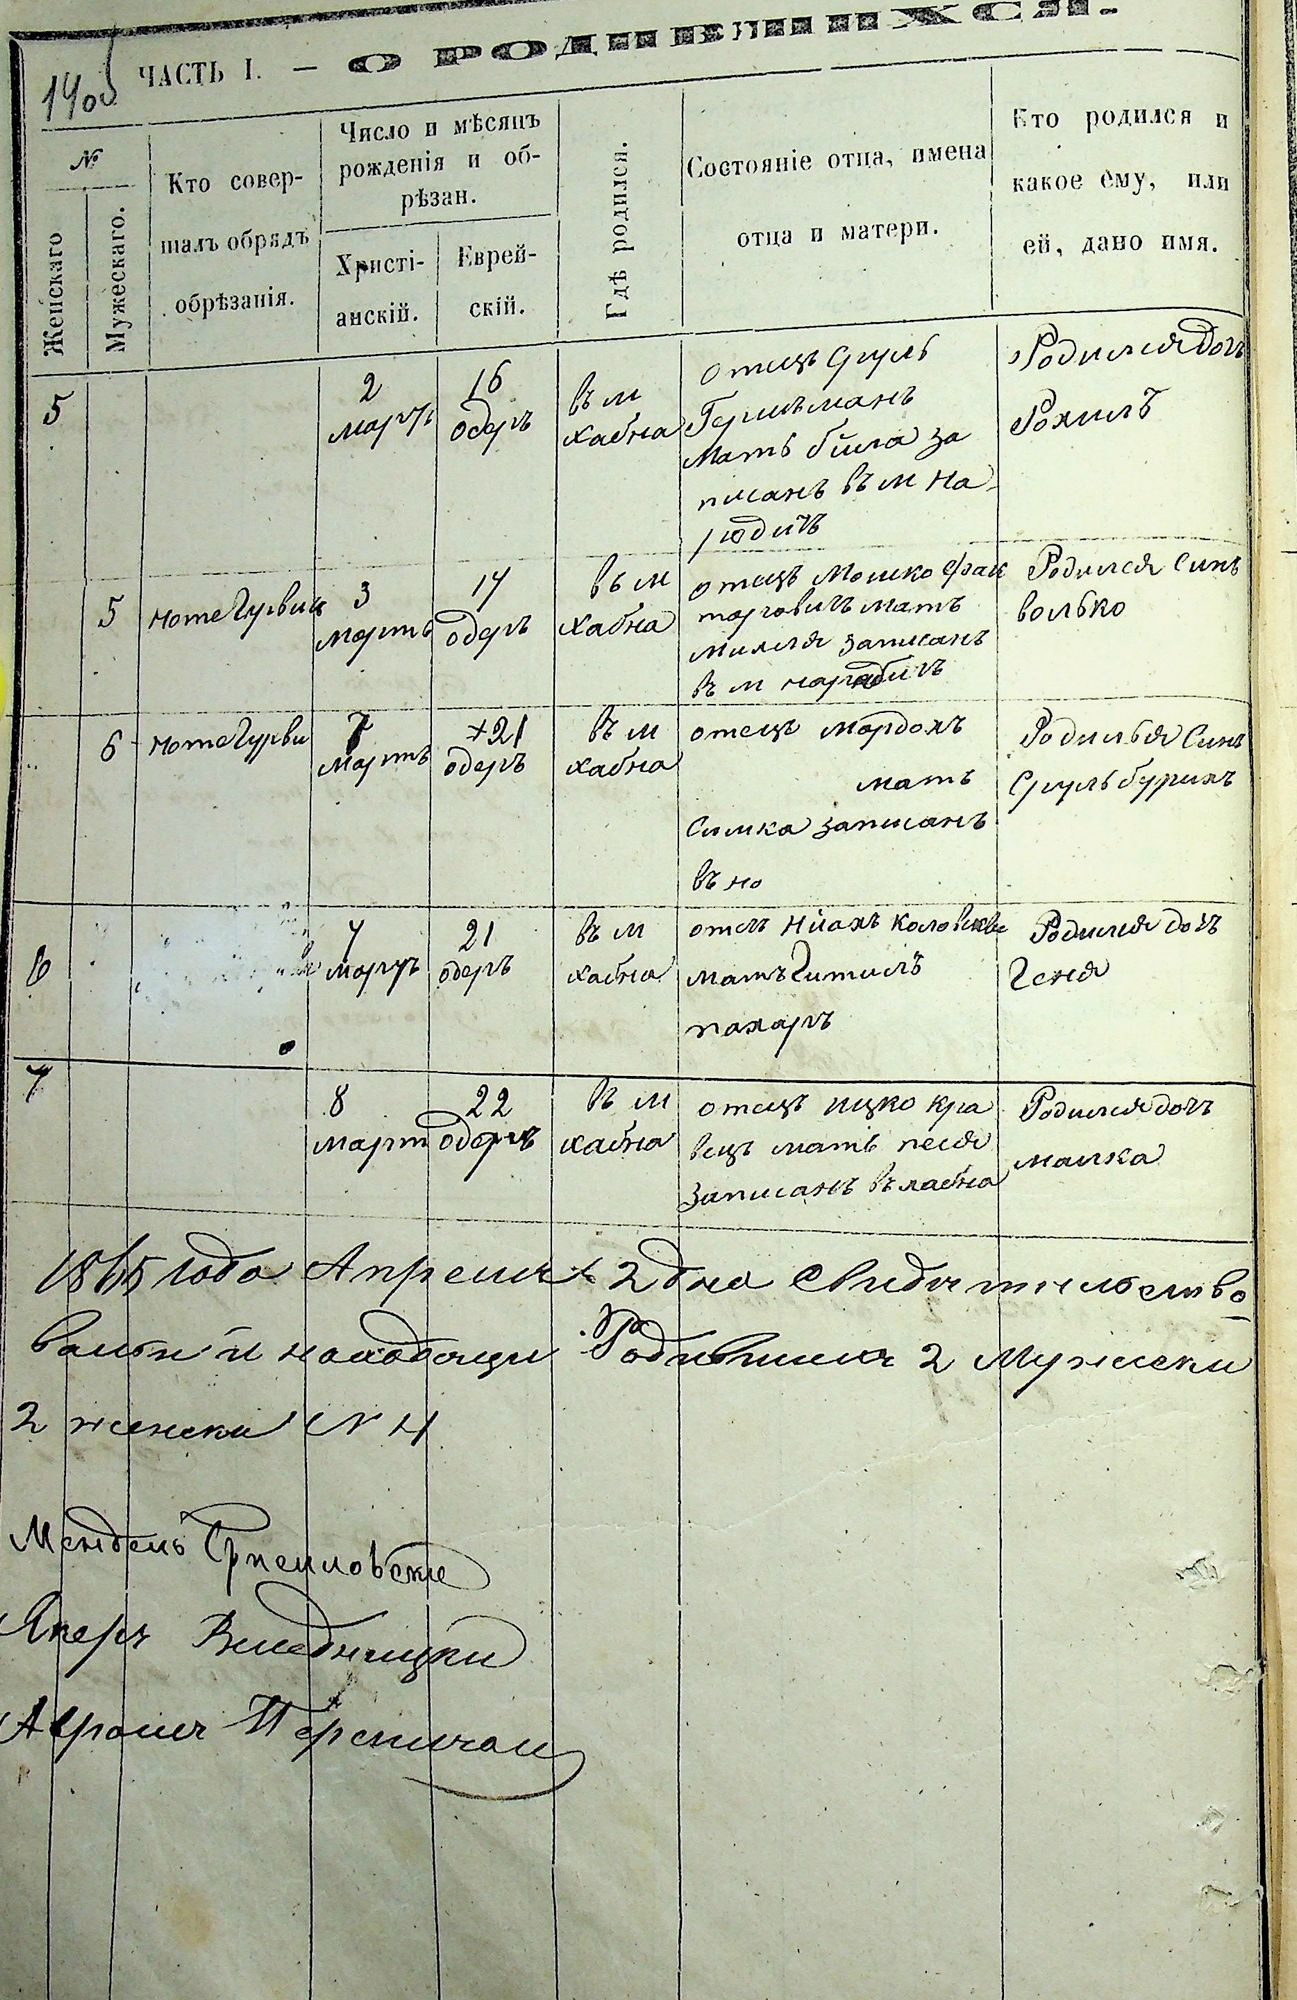 1405
ЧАСТЬ I. — О РОДИВШИХСЯ.
№
Женскаго
Мужескаго.
Кто совер-
шалъ обрядъ
обрѣзанія.
Число и мѣсяцъ
рожденія и об-
рѣзан.
Христі-
анскій.
Еврей-
скій.
Гдѣ родился.
Состояніе отца, имена
отца и матери.
Кто родился и
какое ему, или
ей, дано имя.
5
2
мартъ
16
одеръ
въ м
хабна
отецъ Сруль
Гершманъ
Мать била за
писанъ въ м На
Родился дочь
Рохилъ
5
Ноте Гурвиц
3
мартъ
17
одеръ
въ м
хабна
отецъ Мошко Фак
торовичъ мать
записанъ
въ м
Родился Синъ
волько
6
Ноте Гурви
7
мартъ
21
одеръ
въ м
хабна
отецъ мордохъ
мать
Симка записанъ
въ но
Родилься Синъ
Сруль бурихъ
6
7
мартъ
21
одеръ
въ м
хабна
мать Гитилъ
пахаръ
Родился дочъ
Геня
7
8
март
22
одеръ
въ м
хабна
отецъ ицко кра
вецъ мать песя
записанъ въ хабна
Родился дочъ
малка
1865 года Апреля 2 дна Свидетельство
вали и находящи Родившихъ 2 Мужески
2 женски № 4
Мендель
Аврамъ